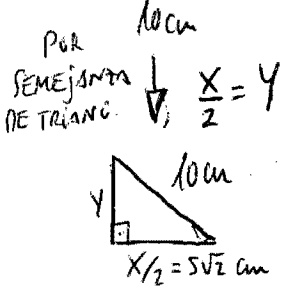 10cm
POR
SEMEJANZA
DE TRIANG.
X/2 = Y
10cm
Y
X/2 = 5√2 cm